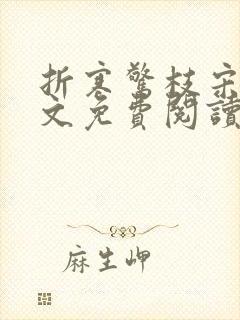 折寒驚枝宋
文免費閱讀
麻生岬